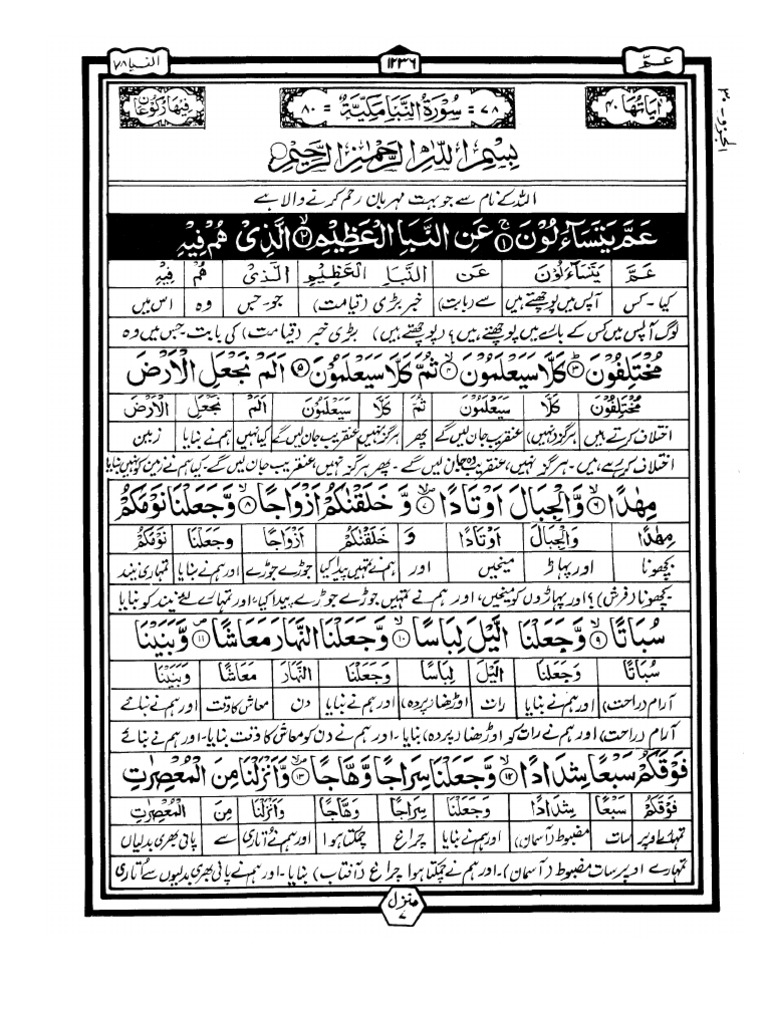 عـمّ ۱۲۳۶ النبا ۷۸
الجزو ـ ۳۰
اٰیَاتُهَا ۴۰ ۷۸ = سُوْرَةُ النَّبَا مَکِّیَّةٌ = ۸۰ فِیْهَا رُکُوْعَانِ
بِسْمِ اللّٰهِ الرَّحْمٰنِ الرَّحِیْمِ
اللہ کے نام سے جو بہت مہربان رحم کرنے والا ہے
عَمَّ یَتَسَآءَلُوْنَ ۱ عَنِ النَّبَاِ الْعَظِیْمِ ۲ الَّذِیْ هُمْ فِیْهِ
عَمَّ یَتَسَآءَلُوْنَ عَنِ النَّبَاِ الْعَظِیْمِ الَّذِیْ هُمْ فِیْهِ
کیا - کس آپس میں پوچھتے ہیں سے (بابت) خبر بڑی (قیامت) جو - جس وہ اس میں
لوگ آپس میں کس کے بارے میں پوچھتے ہیں؟ (پوچھتے ہیں) بڑی خبر (قیامت) کی بابت جس میں وہ
مُخْتَلِفُوْنَ ۳ کَلَّا سَیَعْلَمُوْنَ ۴ ثُمَّ کَلَّا سَیَعْلَمُوْنَ ۵ اَلَمْ نَجْعَلِ الْاَرْضَ
مُخْتَلِفُوْنَ کَلَّا سَیَعْلَمُوْنَ ثُمَّ کَلَّا سَیَعْلَمُوْنَ اَلَمْ نَجْعَلِ الْاَرْضَ
اختلاف کرتے ہیں ہرگز (نہیں) عنقریب جان لیں گے پھر ہرگز نہیں عنقریب جان لیں گے کیا نہیں ہم نے بنایا زمین
اختلاف کر رہے ہیں - ہرگز نہیں، عنقریب وہ جان لیں گے - پھر ہرگز نہیں، عنقریب جان لیں گے - کیا ہم نے زمین کو نہیں بنایا
مِهٰدًا ۶ وَّالْجِبَالَ اَوْتَادًا ۷ وَّ خَلَقْنٰکُمْ اَزْوَاجًا ۸ وَّجَعَلْنَا نَوْمَکُمْ
مِهٰدًا وَّالْجِبَالَ اَوْتَادًا وَّ خَلَقْنٰکُمْ اَزْوَاجًا وَّجَعَلْنَا نَوْمَکُمْ
بچھونا اور پہاڑ میخیں اور ہم نے تمہیں پیدا کیا جوڑے جوڑے اور ہم نے بنایا تمہاری نیند
بچھونا (فرش)؟ اور پہاڑوں کو میخیں، اور ہم نے تمہیں جوڑے جوڑے پیدا کیا، اور تمہارے لیے نیند کو بنایا
سُبَاتًا ۹ وَّجَعَلْنَا الَّیْلَ لِبَاسًا ۱۰ وَّجَعَلْنَا النَّهَارَ مَعَاشًا ۱۱ وَّبَنَیْنَا
سُبَاتًا وَّجَعَلْنَا الَّیْلَ لِبَاسًا وَّجَعَلْنَا النَّهَارَ مَعَاشًا وَّبَنَیْنَا
آرام (راحت) اور ہم نے بنایا رات اوڑھنا (پردہ) اور ہم نے بنایا دن معاش کا وقت اور ہم نے بنائے
آرام (راحت) اور ہم نے رات کو اوڑھنا (پردہ) بنایا - اور ہم نے دن کو معاش کا وقت بنایا - اور ہم نے بنائے
فَوْقَکُمْ سَبْعًا شِدَادًا ۱۲ وَّجَعَلْنَا سِرَاجًا وَّهَّاجًا ۱۳ وَّاَنْزَلْنَا مِنَ الْمُعْصِرٰتِ
فَوْقَکُمْ سَبْعًا شِدَادًا وَّجَعَلْنَا سِرَاجًا وَّهَّاجًا وَّاَنْزَلْنَا مِنَ الْمُعْصِرٰتِ
تمہارے اوپر سات مضبوط (آسمان) اور ہم نے بنایا چراغ چمکتا ہوا اور ہم نے اُتاری سے پانی بھری بدلیاں
تمہارے اوپر سات مضبوط (آسمان) - اور ہم نے چمکتا ہوا چراغ (آفتاب) بنایا - اور ہم نے پانی بھری بدلیوں سے اُتاری
منزل ۷